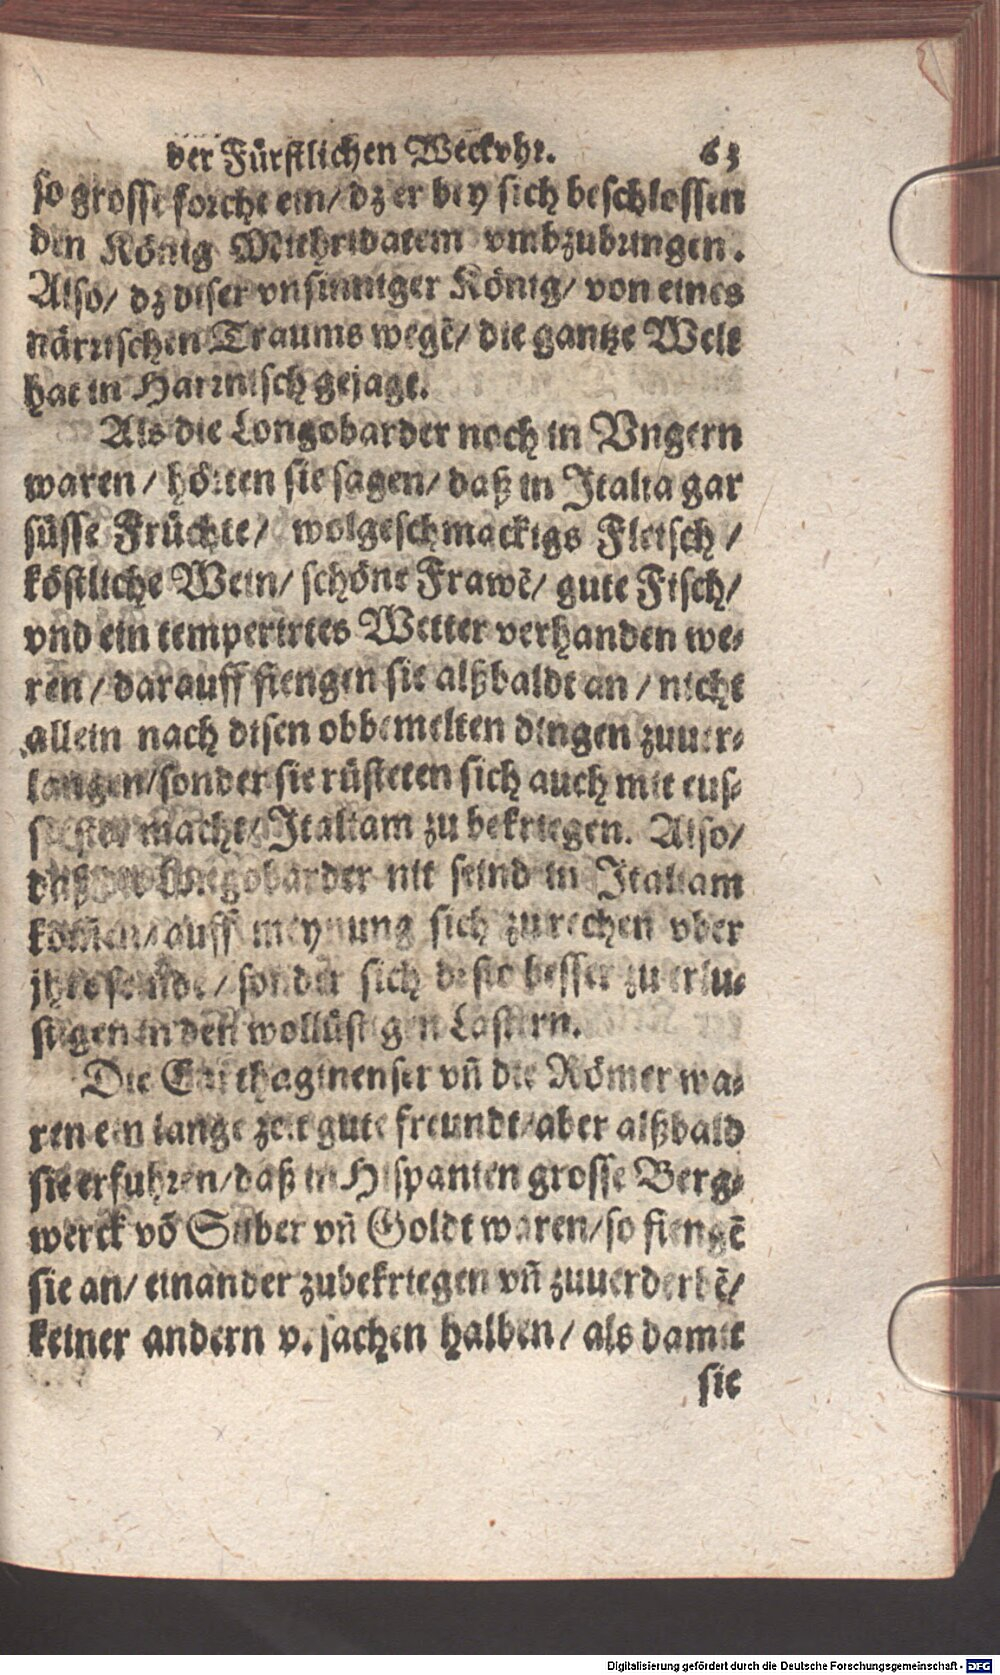 der Fürstlichen Weckvhr. 63
so grosse forcht ein/ dz er bey sich beschlossen
den König Mithridatem vmbzubringen.
Also/ dz diser vnsinniger König/ von eines
närrischen Traums wegē/ die gantze Welt
hat in Harrnisch gejagt.
Als die Longobarder noch in Vngern
waren/ hörten sie sagen/ daß in Italia gar
süsse Früchte/ wolgeschmackigs Fleisch/
köstliche Wein/ schöne Frawē/ gute Fisch/
vnd ein temperirtes Wetter verhanden we-
ren/ darauff fiengen sie alßbaldt an/ nicht
allein nach disen obbemelten dingen zuuer-
langen/ sonder sie rüsteten sich auch mit eus-
macht/ Italiam zu bekriegen. Also/
daß die Longobarder nit seind in Italiam
kom̃en/ auff meynung sich zurechen vber
jhre feinde/ sonder sich desto besser zu erlu-
stigen in den wollüstigen Lastern.
Die Carthaginenser vñ die Römer wa-
ren ein lange zeit gute freundt/ aber alßbald
sie erfuhren/ daß in Hispanien grosse Berg-
werck vō Silber vñ Goldt waren/ so fiengē
sie an/ einander zubekriegen vñ zuuerderbē/
keiner andern vrsachen halben/ als damit
sie
Digitalisierung gefördert durch die Deutsche Forschungsgemeinschaft - DFG